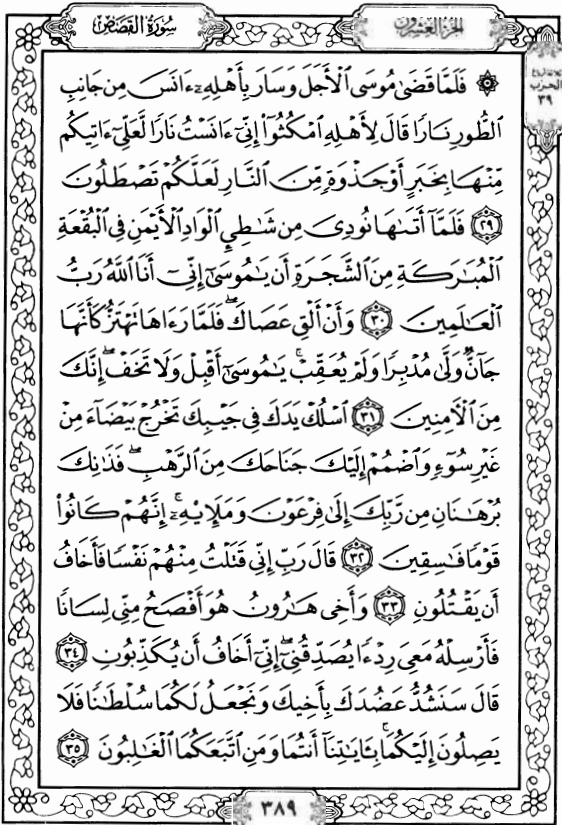 سُورَةُ القَصَصِ
الجزء العشرون
۞ فَلَمَّا قَضَىٰ مُوسَى ٱلْأَجَلَ وَسَارَ بِأَهْلِهِۦٓ ءَانَسَ مِن جَانِبِ
ٱلطُّورِ نَارًا قَالَ لِأَهْلِهِ ٱمْكُثُوٓا۟ إِنِّىٓ ءَانَسْتُ نَارًا لَّعَلِّىٓ ءَاتِيكُم
مِّنْهَا بِخَبَرٍ أَوْ جَذْوَةٍ مِّنَ ٱلنَّارِ لَعَلَّكُمْ تَصْطَلُونَ
٢٩ فَلَمَّآ أَتَىٰهَا نُودِىَ مِن شَٰطِئِ ٱلْوَادِ ٱلْأَيْمَنِ فِى ٱلْبُقْعَةِ
ٱلْمُبَٰرَكَةِ مِنَ ٱلشَّجَرَةِ أَن يَٰمُوسَىٰٓ إِنِّىٓ أَنَا ٱللَّهُ رَبُّ
ٱلْعَٰلَمِينَ ٣٠ وَأَنْ أَلْقِ عَصَاكَ ۖ فَلَمَّا رَءَاهَا تَهْتَزُّ كَأَنَّهَا
جَآنٌّ وَلَّىٰ مُدْبِرًا وَلَمْ يُعَقِّبْ ۚ يَٰمُوسَىٰٓ أَقْبِلْ وَلَا تَخَفْ ۖ إِنَّكَ
مِنَ ٱلْءَامِنِينَ ٣١ ٱسْلُكْ يَدَكَ فِى جَيْبِكَ تَخْرُجْ بَيْضَآءَ مِنْ
غَيْرِ سُوٓءٍ وَٱضْمُمْ إِلَيْكَ جَنَاحَكَ مِنَ ٱلرَّهْبِ ۖ فَذَٰنِكَ
بُرْهَٰنَانِ مِن رَّبِّكَ إِلَىٰ فِرْعَوْنَ وَمَلَإِي۟هِۦٓ ۚ إِنَّهُمْ كَانُوا۟
قَوْمًا فَٰسِقِينَ ٣٢ قَالَ رَبِّ إِنِّى قَتَلْتُ مِنْهُمْ نَفْسًا فَأَخَافُ
أَن يَقْتُلُونِ ٣٣ وَأَخِى هَٰرُونُ هُوَ أَفْصَحُ مِنِّى لِسَانًا
فَأَرْسِلْهُ مَعِىَ رِدْءًا يُصَدِّقُنِىٓ ۖ إِنِّىٓ أَخَافُ أَن يُكَذِّبُونِ ٣٤
قَالَ سَنَشُدُّ عَضُدَكَ بِأَخِيكَ وَنَجْعَلُ لَكُمَا سُلْطَٰنًا فَلَا
يَصِلُونَ إِلَيْكُمَا ۚ بِـَٔايَٰتِنَآ أَنتُمَا وَمَنِ ٱتَّبَعَكُمَا ٱلْغَٰلِبُونَ ٣٥
الحزب
٣٩
٣٨٩